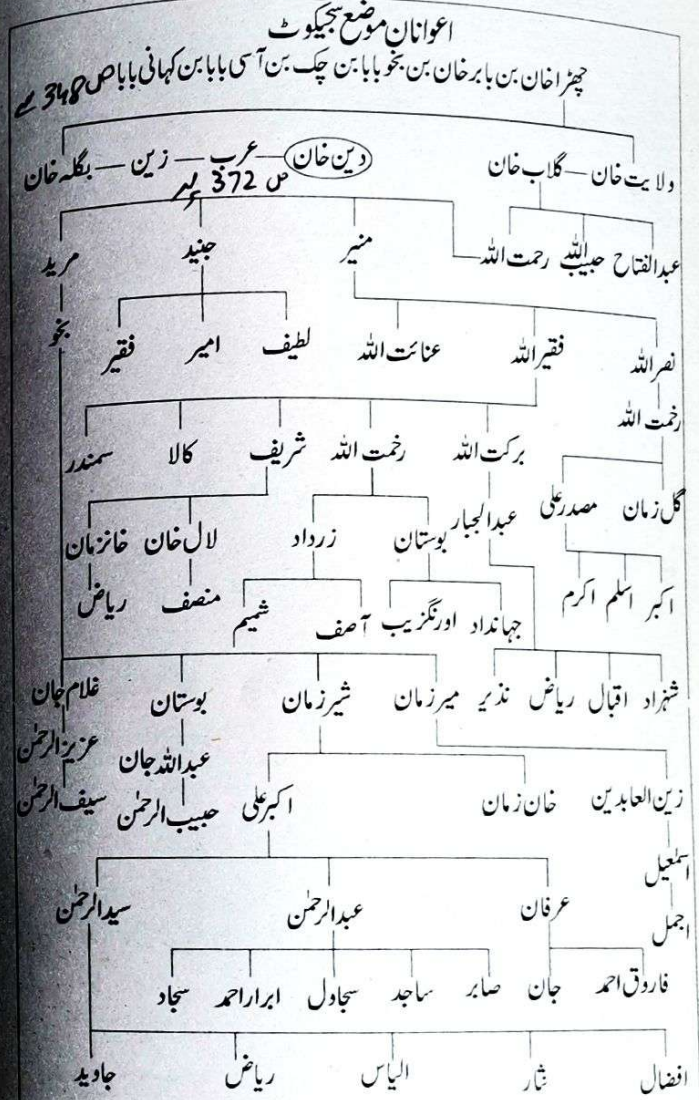 اعوانان موضع سجیکوٹ
چھڑا خان بن بابر خان بن بخو بابا بن چک بن آسی بابا بن کہانی بابا ص 348 سے
ولایت خان — گلاب خان دین خان — عرب — زین — بگلہ خان
ص 372 پر
عبدالفتاح حبیب اللہ رحمت اللہ منیر جنید مرید
نصر اللہ فقیر اللہ عنائت اللہ لطیف امیر فقیر بخو
رحمت اللہ
برکت اللہ رحمت اللہ شریف کالا سمندر
گل زمان مصدر علی عبدالجبار بوستان زرداد لال خان خانزمان
اکبر اسلم اکرم جہانداد اورنگزیب آصف شمیم منصف ریاض
شہزاد اقبال ریاض نذیر میر زمان شیر زمان بوستان غلام جان
عبداللہ جان عزیز الرحمٰن
زین العابدین خان زمان اکبر علی حبیب الرحمٰن سیف الرحمٰن
اسمٰعیل
عرفان عبدالرحمٰن سید الرحمٰن
اجمل
فاروق احمد جان صابر ساجد سجاول ابرار احمد سجاد
افضال نثار الیاس ریاض جاوید